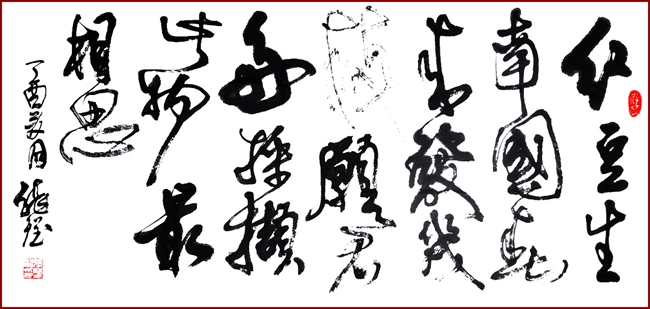 红豆生
南國春
来發幾
願君
多採擷
此物最
相思
丁酉夏月